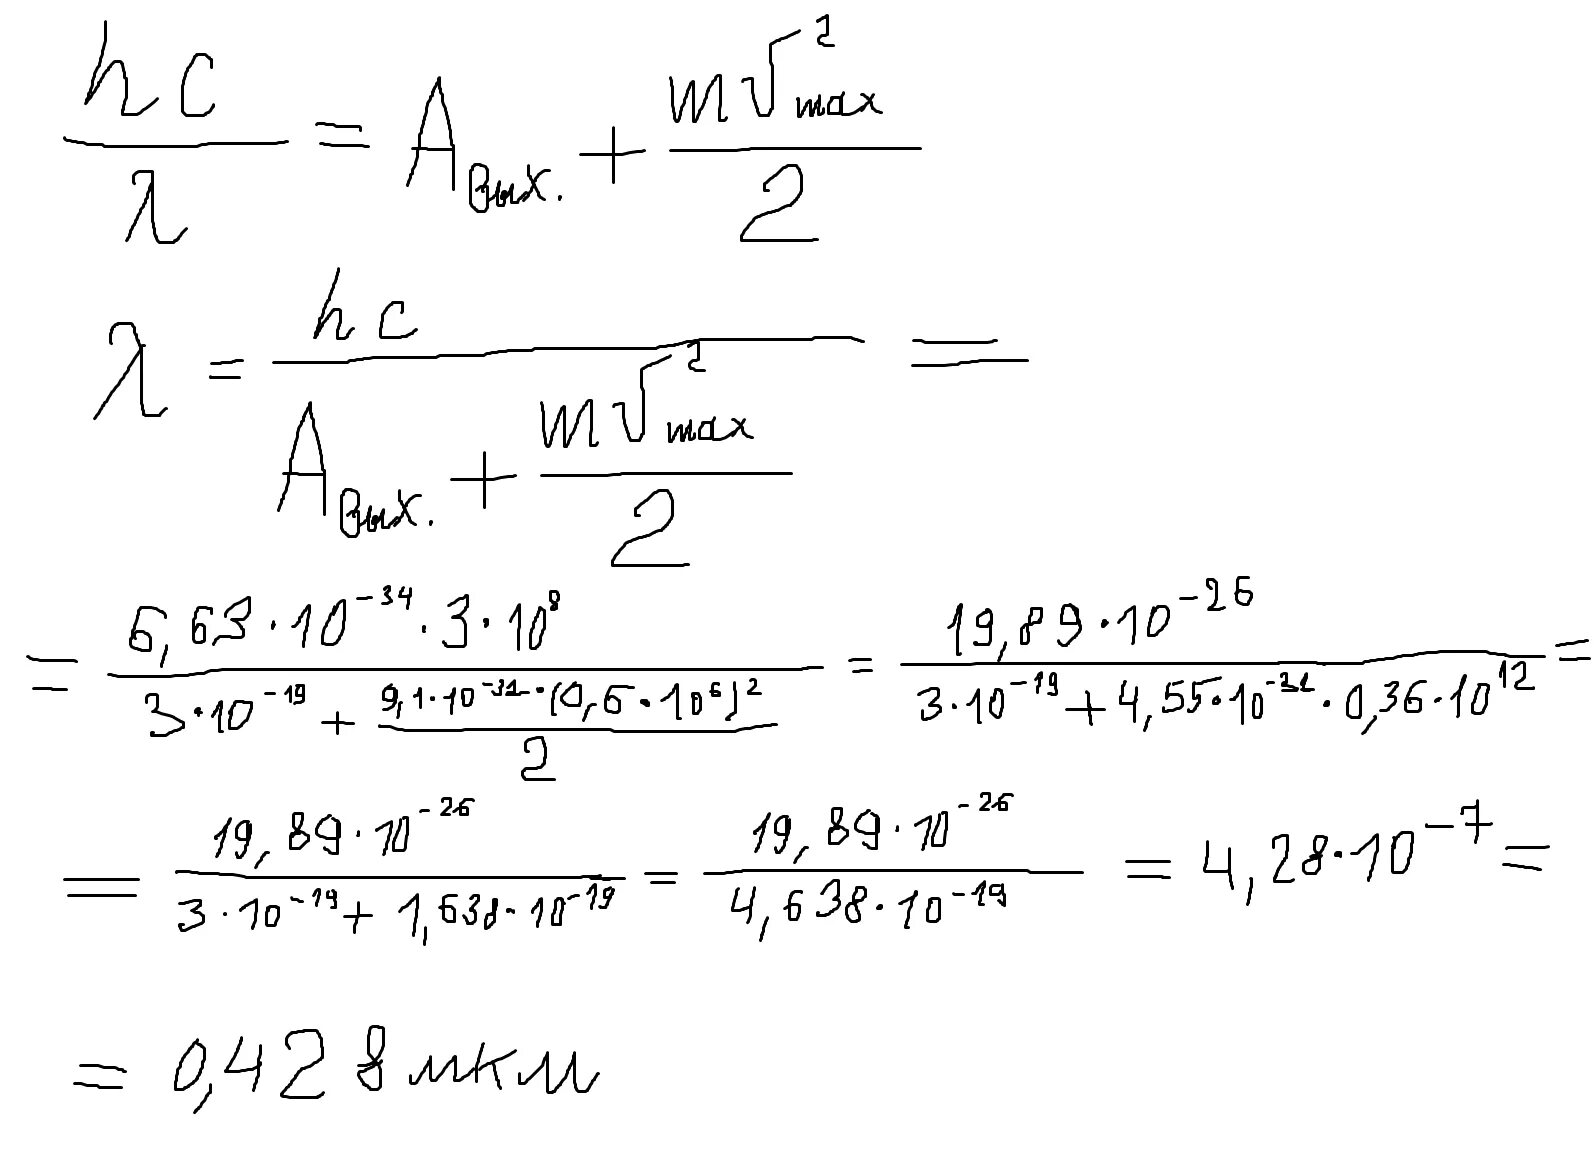 hc/λ = Aвых. + mv²max/2
λ = hc/(Aвых. + mv²max/2) =
= (6,63·10⁻³⁴·3·10⁸)/(3·10⁻¹⁹ + (9,1·10⁻³¹·(0,6·10⁶)²)/2) = (19,89·10⁻²⁶)/(3·10⁻¹⁹ + 4,55·10⁻³¹·0,36·10¹²) =
= (19,89·10⁻²⁶)/(3·10⁻¹⁹ + 1,638·10⁻¹⁹) = (19,89·10⁻²⁶)/(4,638·10⁻¹⁹) = 4,28·10⁻⁷ =
= 0,428 мкм